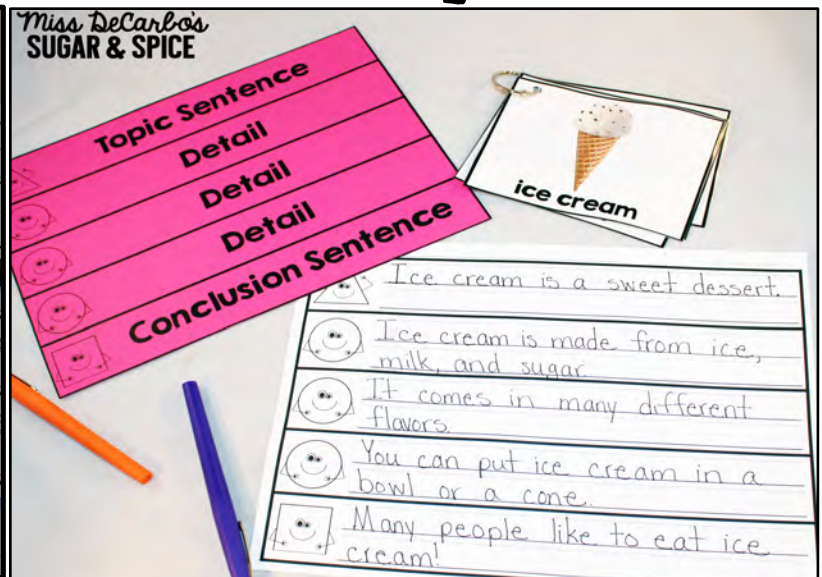 Miss DeCarbo's
SUGAR & SPICE
Topic Sentence
Detail
Detail
Detail
Conclusion Sentence
ice cream
Ice cream is a sweet dessert.
Ice cream is made from ice,
milk, and sugar
It comes in many different
flavors.
You can put ice cream in a
bowl or a cone.
Many people like to eat ice
cream!